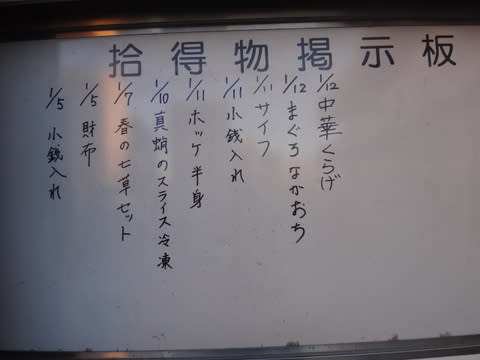 拾得物掲示板
1/12 中華くらげ
1/12 まぐろなかおち
1/11 サイフ
1/11 小銭入れ
1/11 ホッケ半身
1/10 真蛸のスライス冷凍
1/7 春の七草セット
1/5 財布
1/5 小銭入れ